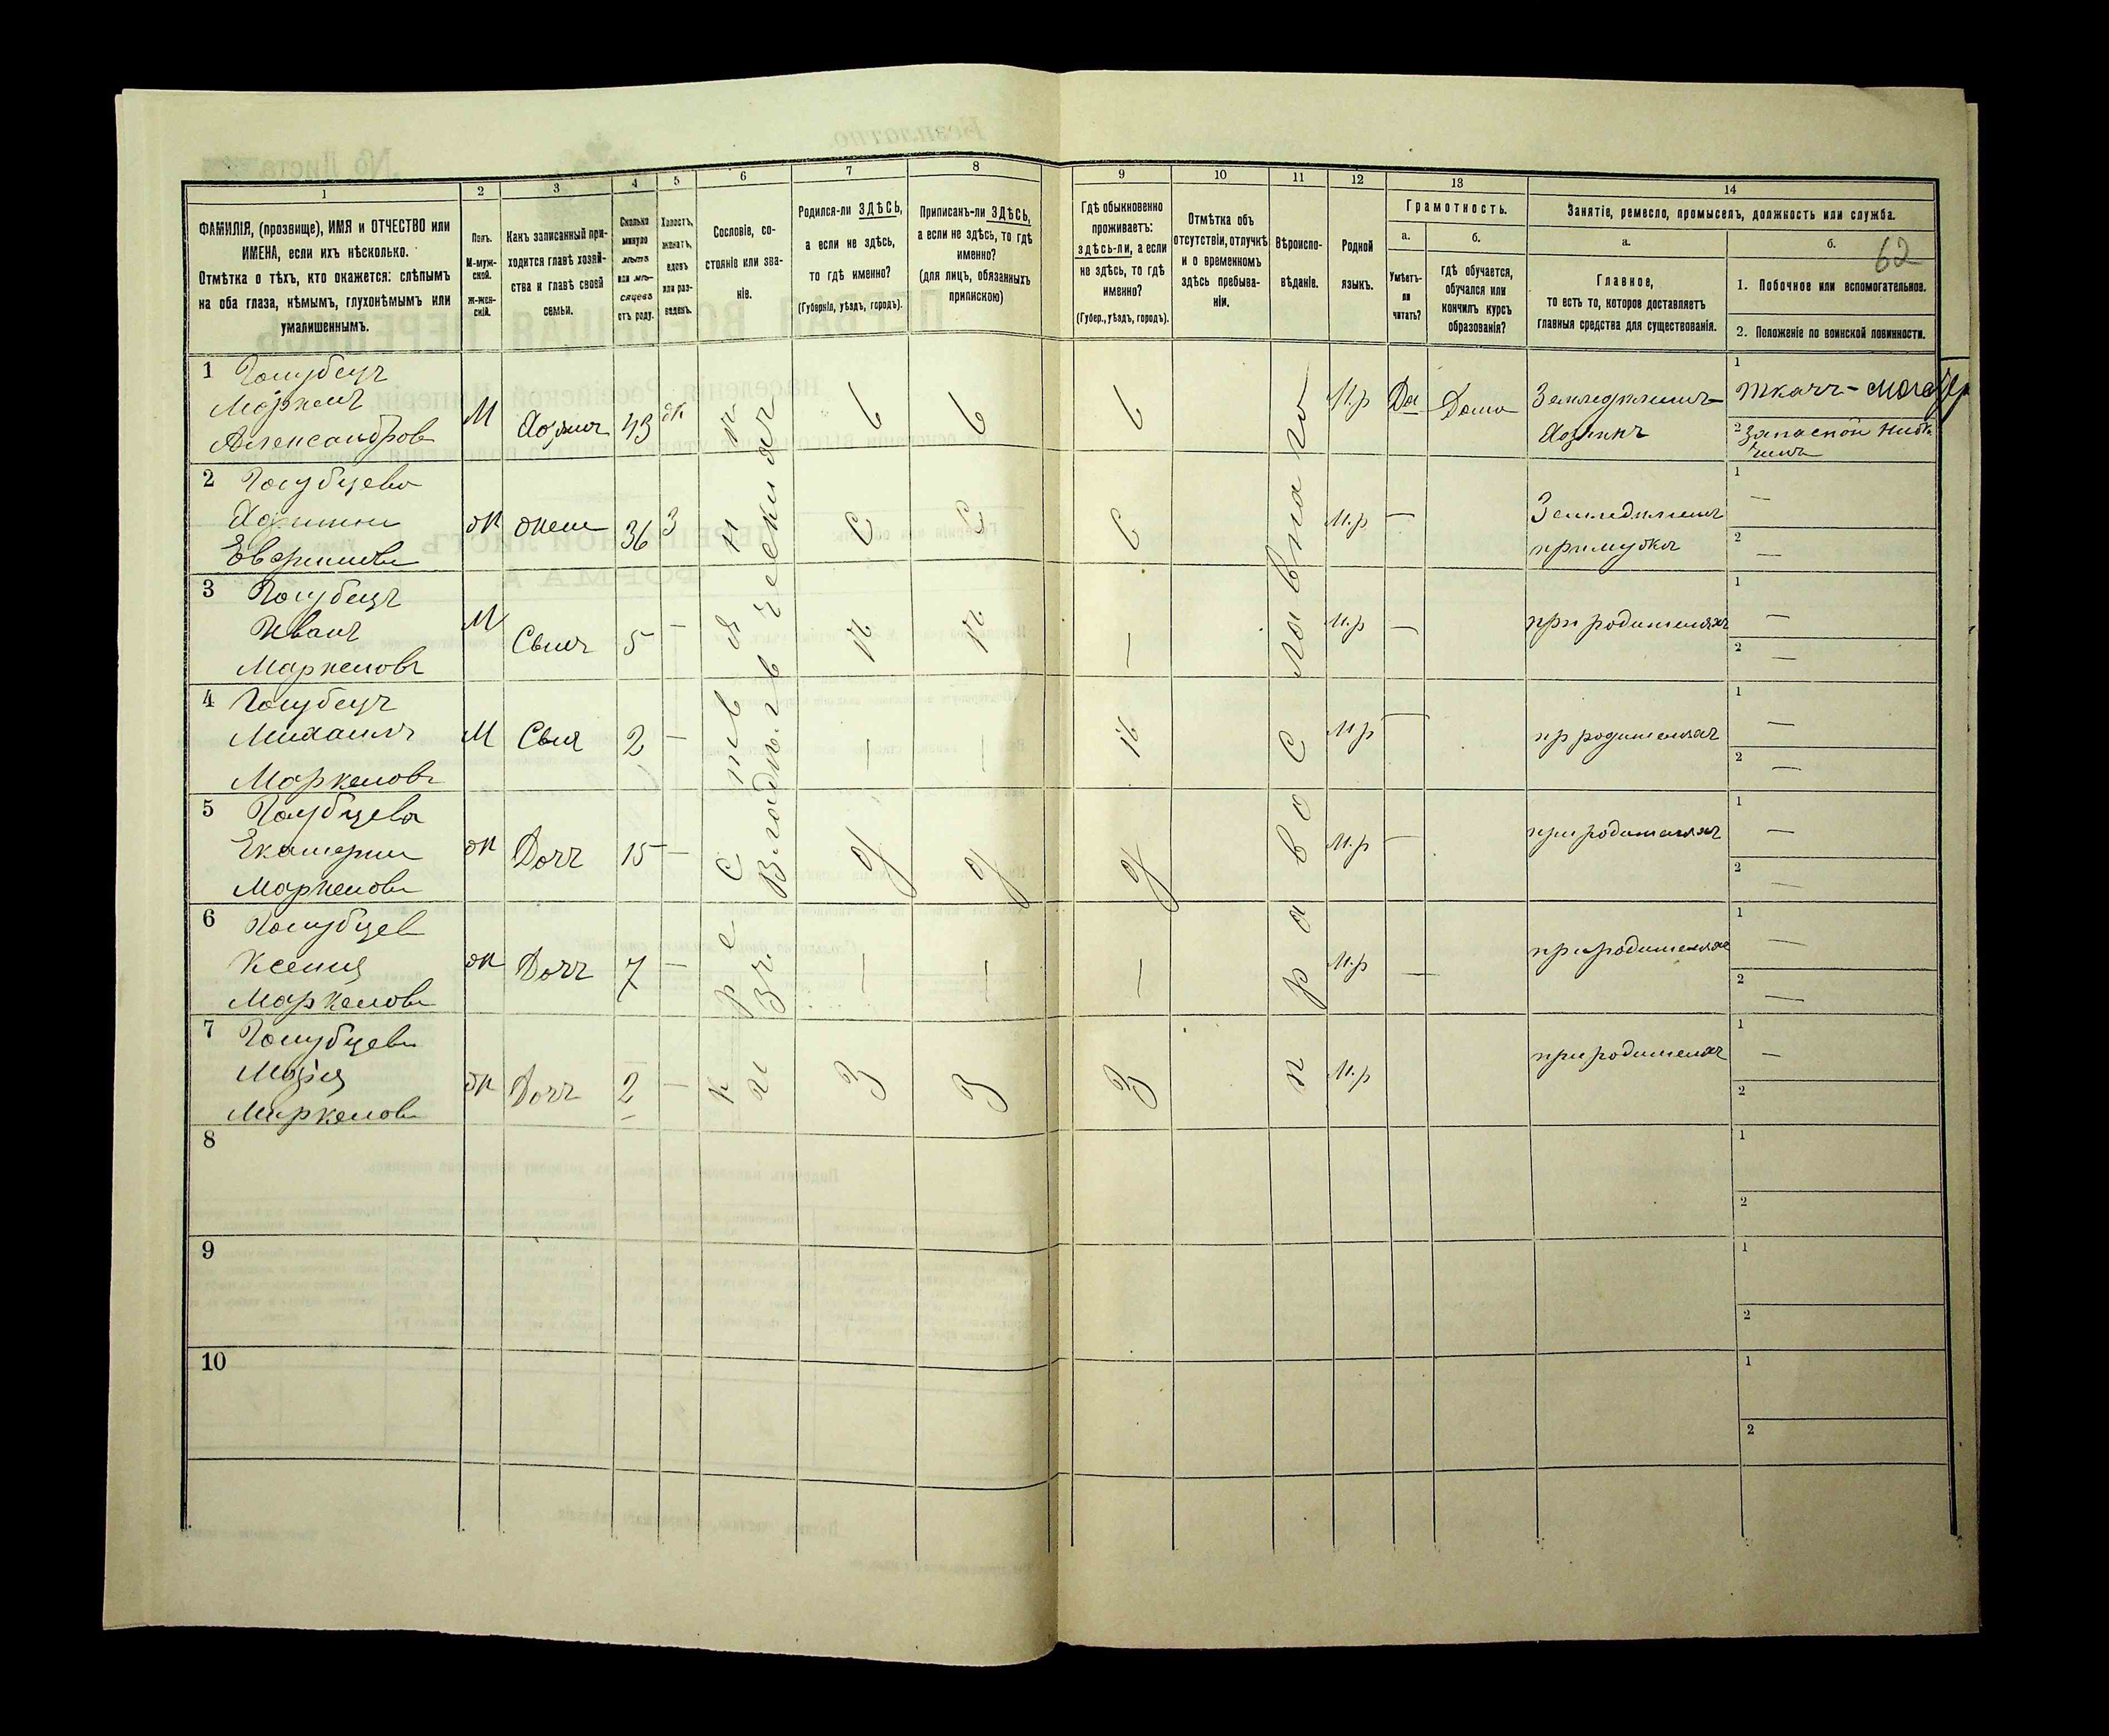 1
2
3
4
5
6
7
8
9
10
11
12
13
14
ФАМИЛІЯ, (прозвище), ИМЯ и ОТЧЕСТВО или
ИМЕНА, если ихъ нѣсколько.
Отмѣтка о тѣхъ, кто окажется: слѣпымъ
на оба глаза, нѣмымъ, глухонѣмымъ или
умалишеннымъ.
Полъ.
М-муж-
ской.
Ж-жен-
скій.
Какъ записанный при-
ходится главѣ хозяй-
ства и главѣ своей
семьи.
Сколько
минуло
лѣтъ
или мѣ-
сяцевъ
отъ роду.
Холостъ,
женатъ,
вдовъ
или раз-
веденъ.
Сословіе, со-
стояніе или зва-
ніе.
Родился-ли ЗДѢСЬ,
а если не здѣсь,
то гдѣ именно?
(Губернія, уѣздъ, городъ).
Приписанъ-ли ЗДѢСЬ,
а если не здѣсь, то гдѣ
именно?
(для лицъ, обязанныхъ
припискою)
Гдѣ обыкновенно
проживаетъ:
здѣсь-ли, а если
не здѣсь, то гдѣ
именно?
(Губер., уѣздъ, городъ).
Отмѣтка объ
отсутствіи, отлучкѣ
и о временномъ
здѣсь пребыва-
ніи.
Вѣроиспо-
вѣданіе.
Родной
языкъ.
Грамотность.
а.
Умѣетъ-
ли
читать?
б.
гдѣ обучается,
обучался или
кончилъ курсъ
образованія?
Занятіе, ремесло, промыселъ, должность или служба.
а.
Главное,
то есть то, которое доставляетъ
главныя средства для существованія.
б.
62
1. Побочное или вспомогательное.
2. Положеніе по воинской повинности.
1 Голубецъ
Маркелъ
Александровъ
М
Хозяинъ
43
ж
М.р
Да
Дома
Земледѣлецъ-
Хозяинъ
1
Ткачъ-
2 Запасной
2 Голубцева
Ж
жена
36
З
М.р
—
1 —
2 —
3 Голубецъ
Иванъ
Маркеловъ
М
Сынъ
5
—
М.р
—
при родителяхъ
1 —
2 —
4 Голубецъ
Михаилъ
Маркеловъ
М
Сынъ
2
—
М.р
—
пр родителяхъ
1 —
2 —
5 Голубцева
Екатерина
Маркелова
Ж
Дочь
15
—
М.р
—
при родителяхъ
1 —
2 —
6 Голубцева
Ксенія
Маркелова
Ж
Дочь
7
—
М.р
—
при родителяхъ
1 —
2 —
7 Голубцева
Марія
Маркелова
Ж
Дочь
2
—
М.р
при родителяхъ
1 —
2
Крестьянинъ
изъ
Владѣльческихъ
Здѣсь
Здѣсь
Здѣсь
православная
8
1
2
9
1
2
10
1
2